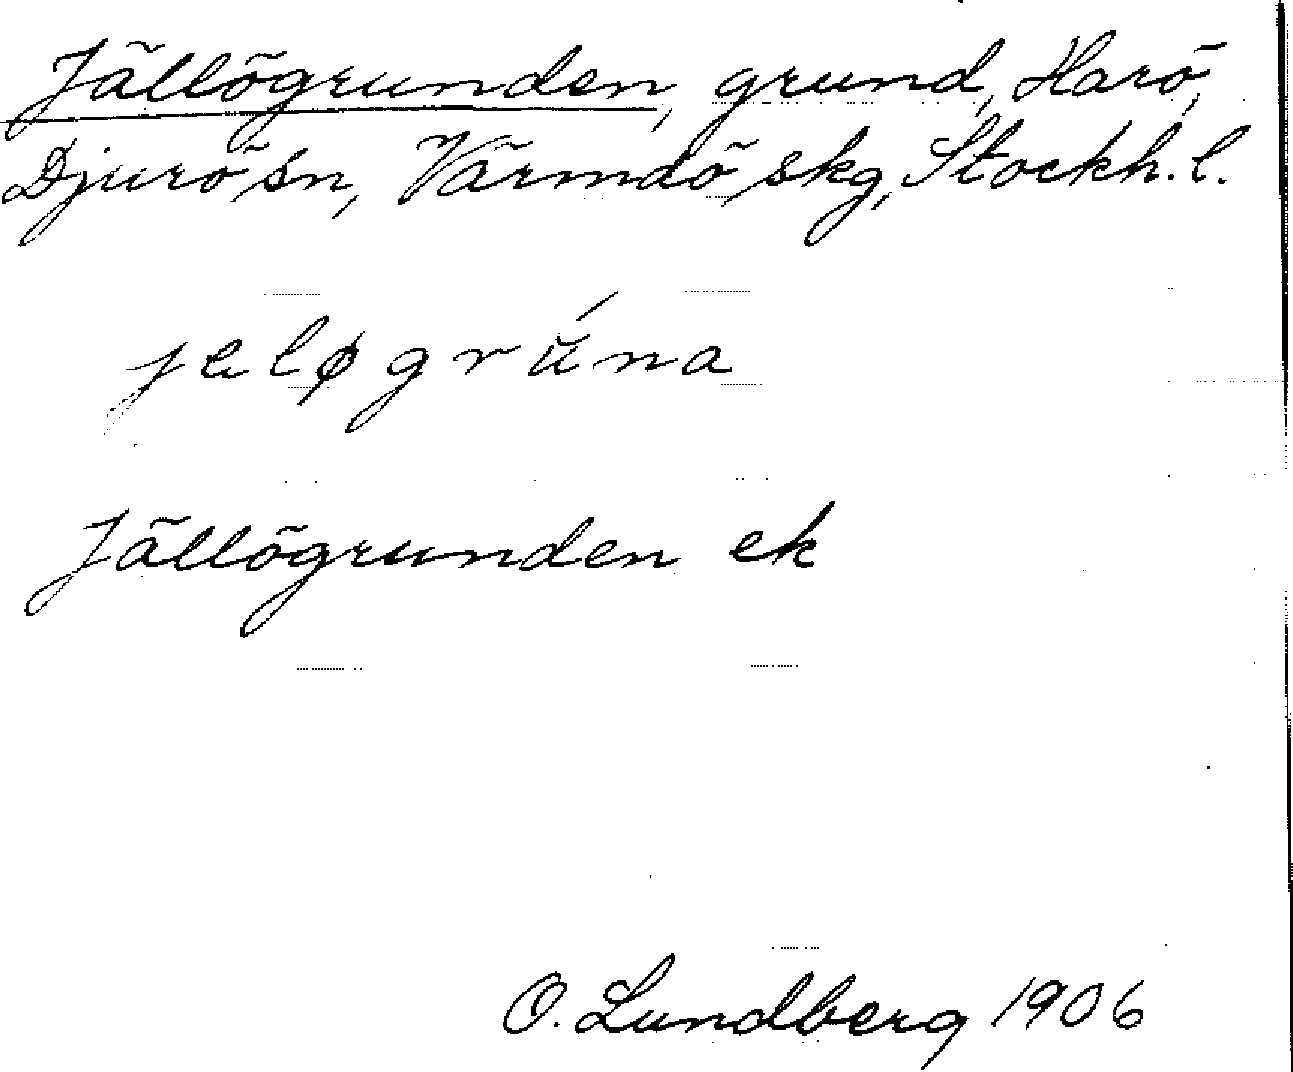 Jällögrunden, grund, Harö,
Djurö sn, Värmdö skg, Stockh. l.
jeløgrúna
Jällögrunden ek
O. Lundberg 1906